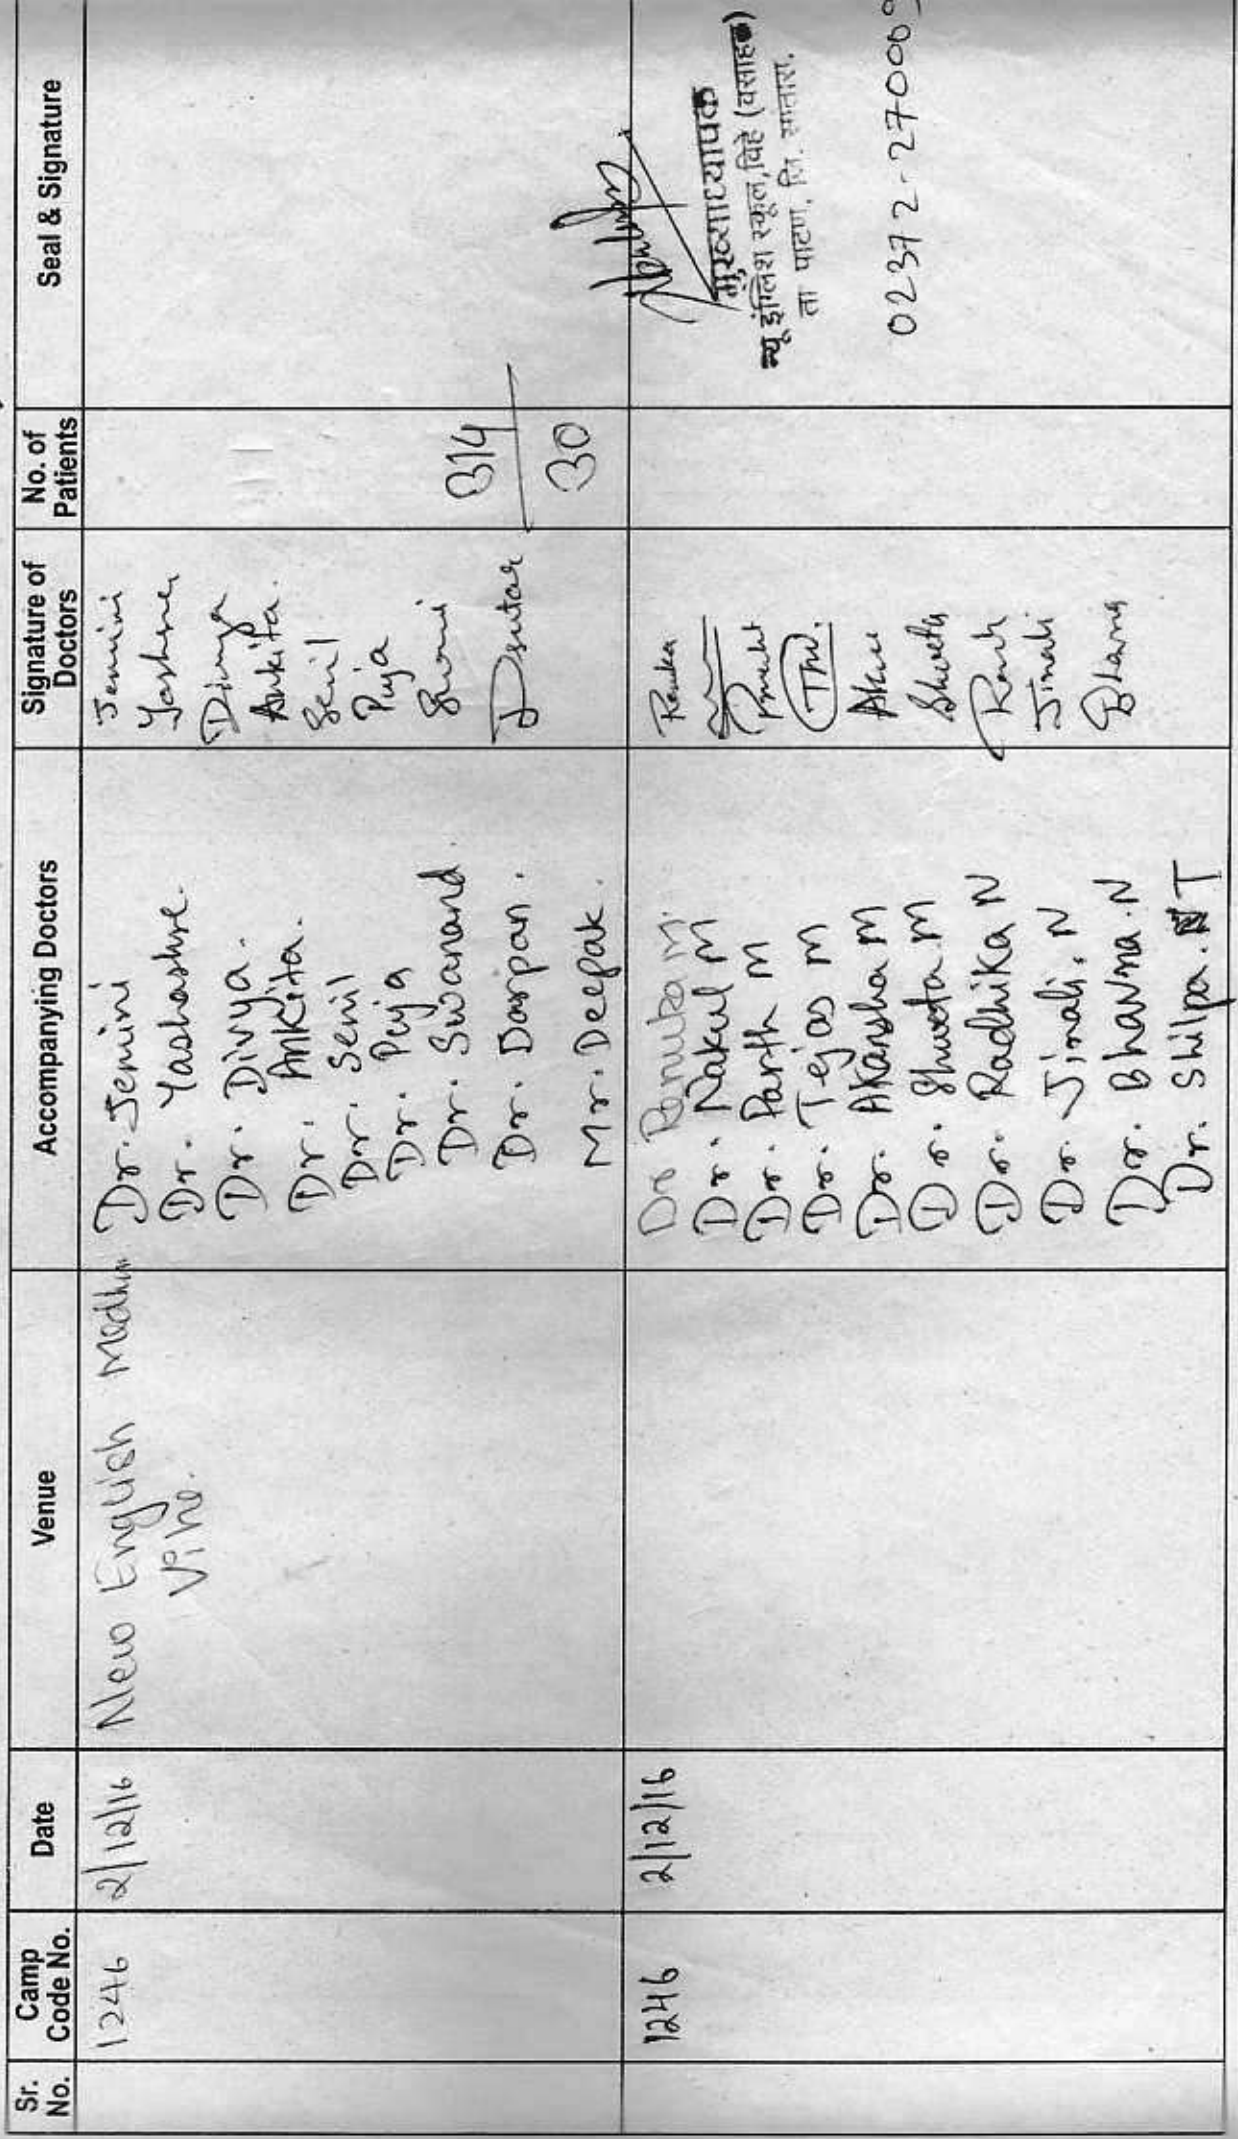 Sr. No.
Camp Code No.
Date
Venue
Accompanying Doctors
Signature of Doctors
No. of Patients
Seal & Signature
1246
2/12/16
New English
Vihe.
Dr. Jemini
Dr. Yashashre.
Dr. Divya.
Dr. Ankita.
Dr. Senil
Dr. Puja
Dr. Swanand.
Dr. Darpan.
Mr. Deepak.
Jemini
Divya
Ankita.
Senil
Puja
Dsutar
314
30
1246
2/12/16
Dr Renuka M.
Dr. Nakul M
Dr. Parth M
Dr. Tejas M
Dr. Akansha M
Dr. Shweta M
Dr. Radhika N
Dr. Jinali. N
Dr. Bhavna. N
Dr. Shilpa. T
Renuka
Shweta
Jinali
Bhavna
मुख्याध्यापक
न्यू इंग्लिश स्कूल, विहे (वसाहत)
ता पाटण, जि. सातारा.
02372-27000